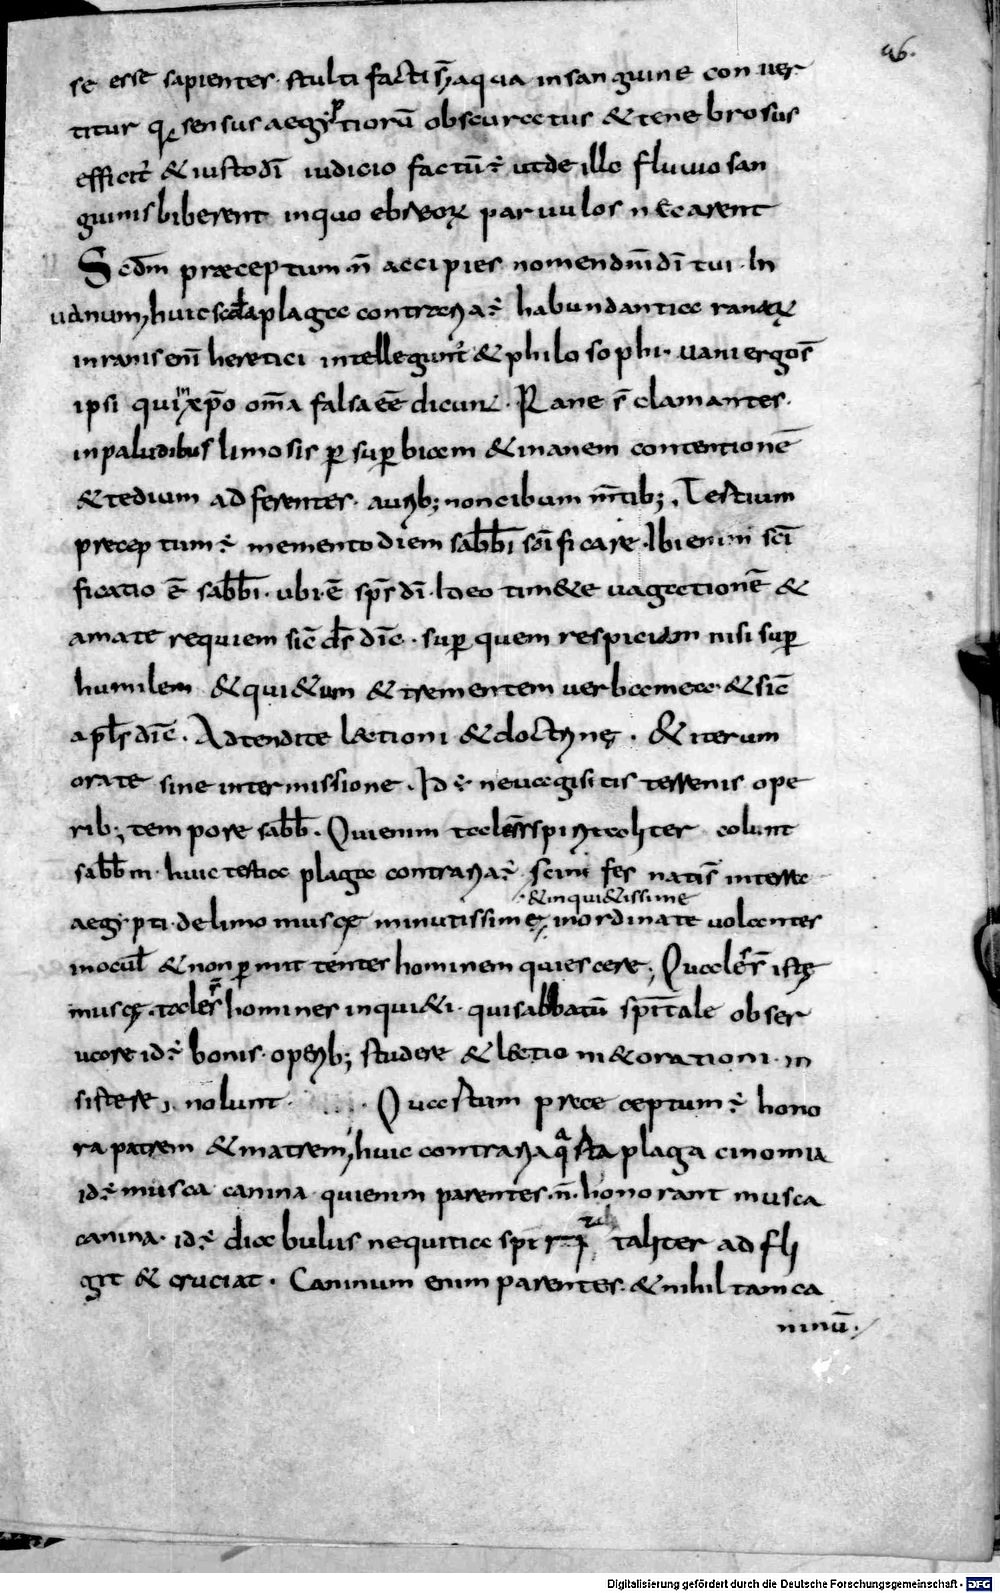 46.
se esse sapientes. stulti facti s̄; aqua in sanguine conver
titur q̄ sensus aegyptiorū obscurectus & tenebrosus
efficit᷑ & iusto dī iudicio factū ÷ ut de illo fluuio san
guinis biberent in quo ebreoꝝ paruulos necarent
Scd̄m præceptum n̄ accipies nomen dn̄i dī tui. In
uanum; huic plagae contraria ÷ habundantiae ranarꝝ
in ranis enī heretici intellegunt᷑ & philosophi. uani ergo s̄
ipsi qui in xp̄o om̄a falsa eē dicunt. Rane s̄ clamantes.
in paludibus limosis ꝑ suꝑbiam & inanem contentionē
& tedium adferentes. aurib; non cibum m̄tib;. Tertium
preceptum ÷ memento diem sab̄b̄i sc̄ificare. Ibi enim sc̄i
ficatio ē sab̄b̄i. ubi ē sp̄s dī. Ideo tim&e uagationē &
amate requiem sic̄ ds̄ dic̄. suꝑ quem respiciam nisi suꝑ
humilem & qui&um & trementem uerba mea & sic̄
apl̄s dic̄. Adtendite lectioni & doctrinę. & iterum
orate sine intermissione. Id ÷ ne uacgisitis terrenis ope
rib; tempore sab̄b̄. Qui enim tales spiritaliter colunt
sab̄b̄m. huic tertiae plagae contraria ÷ scinifes natis̄ in terra
&inqui&issime
aegypti. de limo muscę minutissimę; inordinate uolantes
in ocul̄ & non ꝑmittentes hominem quiescere; Quales s̄ istę
muscę. tales s̄ homines inqui&i. qui sabbatū sp̄itale obser
uare id ÷ bonis. operib; studere & lectioni & orationi. in
sistere nolunt. Quartum preceptum ÷ hono
ra patrem & matrem; huic contraria q̊rta plaga cinomia
id ÷ musca canina qui enim parentes. n̄. honorant musca
canina. id ÷ diabulus nequitiae sp̄i taliter adfli
git & cruciat. Caninum enim parentes. & nihil tam ca
ninū.
Digitalisierung gefördert durch die Deutsche Forschungsgemeinschaft - DFG